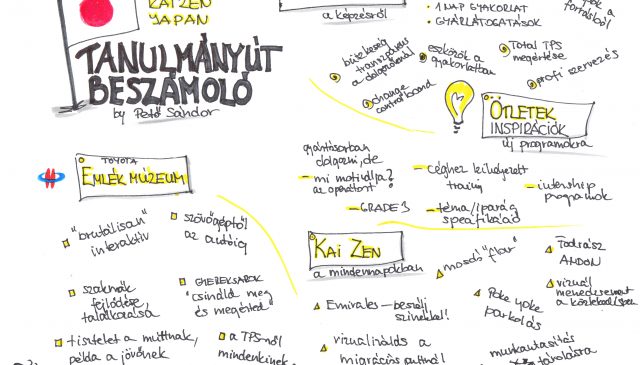 KAIZEN
JAPAN
TANULMÁNYÚT
BESZÁMOLÓ
by Pető Sándor
a képzésről
1 NAP GYAKORLAT
GYÁRLÁTOGATÁSOK
forrásból
büszkeség
a dolgozóknál
change
control board
eszközök a
gyakorlatban
Total TPS
megértése
profi szervezés
ÖTLETEK
INSPIRÁCIÓK
új programokra
gyártósorban
dolgozni, de
- mi motiválja?
az operátort?
- GRADE 3
- céghez kihelyezett
- téma/iparág
- internship
programok
TOYOTA
EMLÉK MÚZEUM
"brutálisan"
interaktív
szövőgéptől
az autóig
szakmák
fejlődése,
találkozása
GYEREKSAROK
"csináld meg
és megérted"
tisztelet a múltnak,
példa a jövőnek
a TPS-ről
mindenkinek
KAI ZEN
a mindennapokban
mosdó "flow"
Todrász
ANDON
Emirates - beszélj
színekkel!
Poke yoke
parkolás
vizuál
menedzsement
a közlekedésben
vizualizálds a
munkautasítás
tárolásra